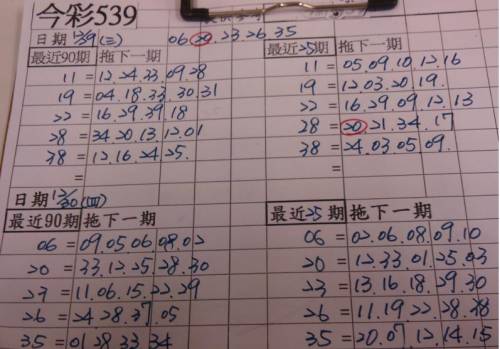 今彩539
日期 12/29 (三) 06 20.23 26.35
最近90期 拖下一期
11 = 12.24.33.09.28
19 = 04.18.33.30.31
22 = 16.29.39.18
28 = 34.20.13.12.01
38 = 12.16.24.25.
=
最近25期 拖下一期
11 = 05.09.10.12.16
19 = 12.03.20.19.
22 = 16.29.09.12.13
28 = 20.21.34.17
38 = 24.03.05.09.
=
日期 12/30 (四)
最近90期 拖下一期
06 = 09.05.06.08.02
20 = 33.12.25.28.30
23 = 11.06.15.22.29
26 = 24.28.37.05
35 = 01.28.33.34
最近25期 拖下一期
06 = 02.06.08.09.10
20 = 12.33.01.25.03
23 = 13.16.18.29.30
26 = 11.19.22.28.38
35 = 20.07.12.14.15